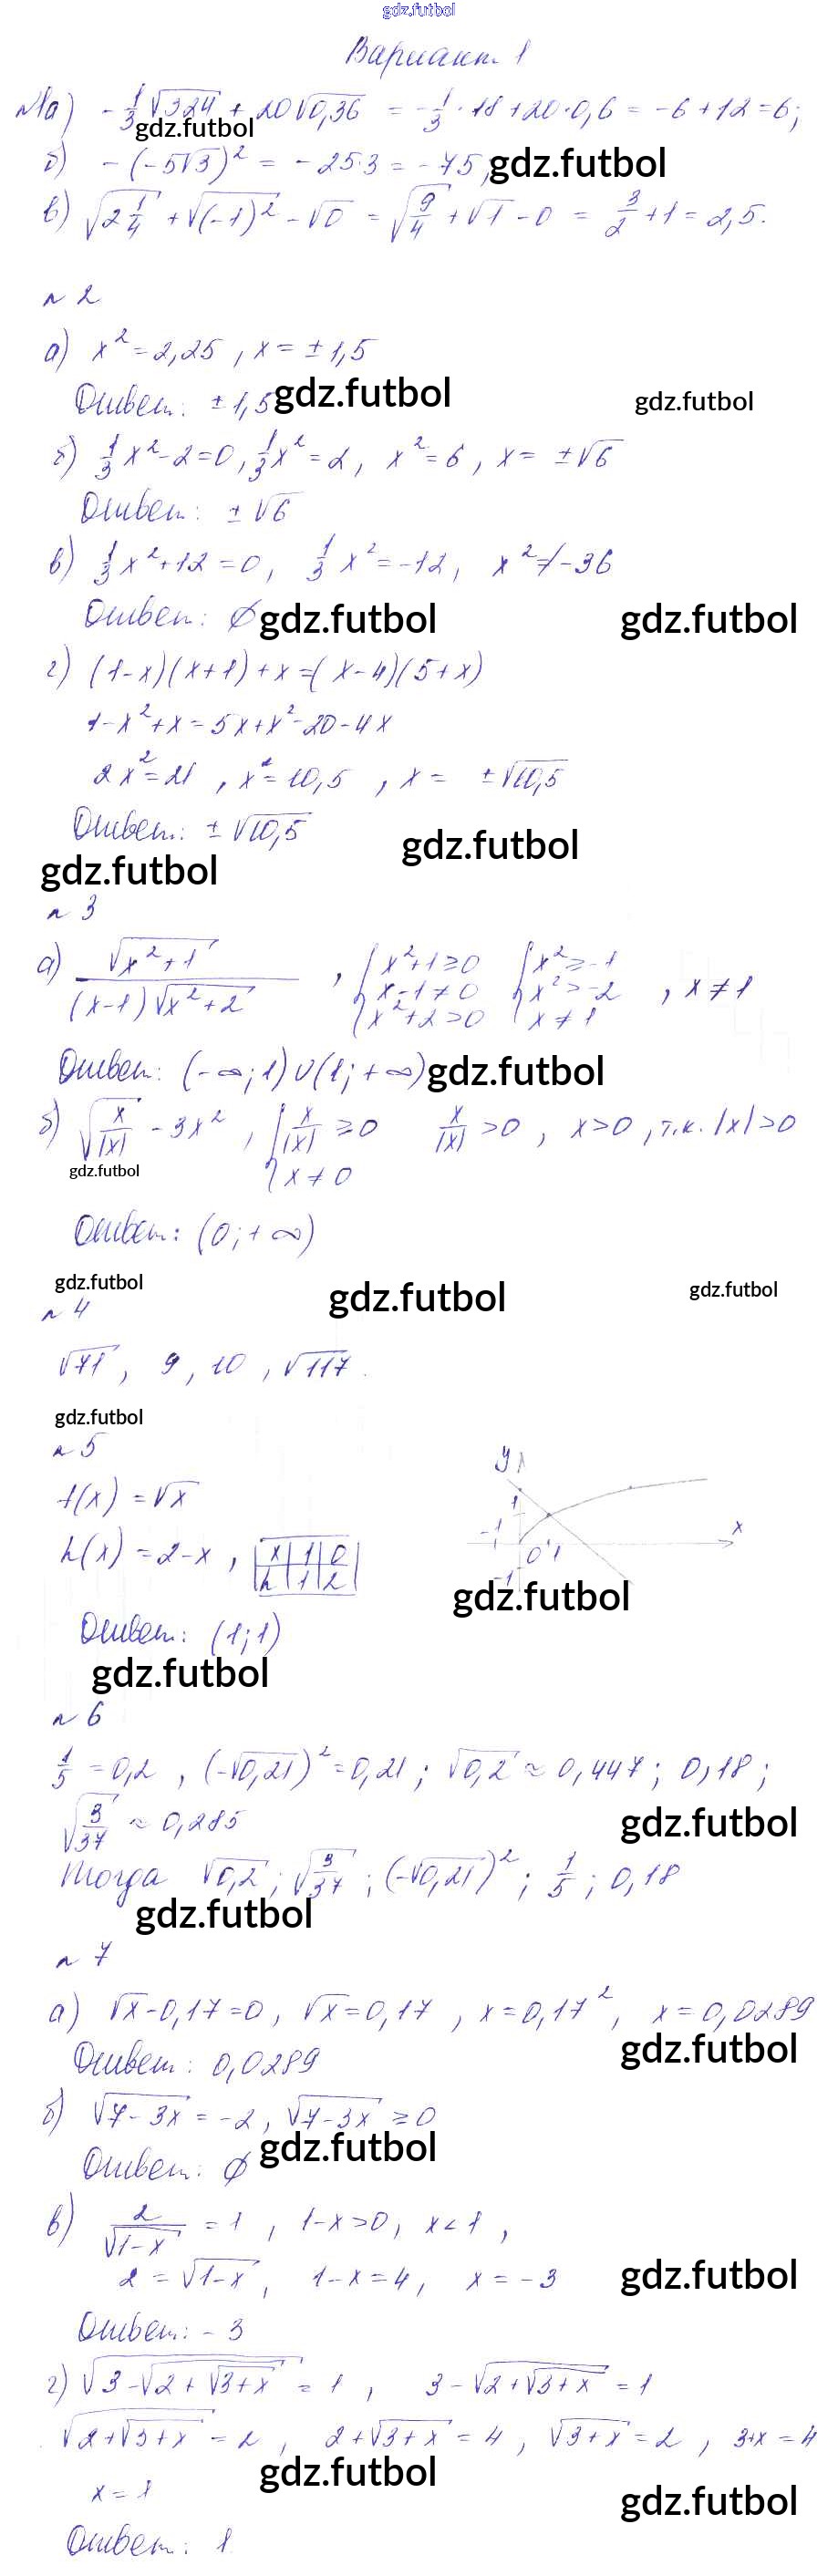 gdz.futbol
Вариант 1
№1а) -1/3√324 + 20√0,36 = -1/3·18+20·0,6 = -6+12=6;
gdz.futbol
б) -(-5√3)² = -25·3 = -75, gdz.futbol
в) √(2 1/4) + √(-1)² - √0 = √(9/4) + √1 - 0 = 3/2 + 1 = 2,5.
№ 2
а) x² = 2,25, x = ±1,5
Ответ: ±1,5 gdz.futbol gdz.futbol
б) 1/3x² - 2 = 0, 1/3x² = 2, x² = 6, x = ±√6
Ответ: ±√6
в) 1/3x² + 12 = 0, 1/3x² = -12, x² ≠ -36
Ответ: ∅ gdz.futbol gdz.futbol
г) (1-x)(x+1) + x = (x-4)(5+x)
1-x²+x = 5x+x²-20-4x
2x² = 21, x² = 10,5, x = ±√10,5
Ответ: ±√10,5 gdz.futbol
gdz.futbol
№ 3
а) √(x²+1) / ((x-1)√(x²+2)), { x²+1≥0 { x²≥-1
x-1≠0 x²>-2, x≠1
x²+2>0 x≠1
Ответ: (-∞; 1)∪(1; +∞) gdz.futbol
б) √(x/|x|) - 3x², { x/|x| ≥ 0 x/|x| > 0, x>0, т.к. |x|>0
gdz.futbol x ≠ 0
Ответ: (0; +∞)
gdz.futbol gdz.futbol gdz.futbol
№ 4
√71, 9, 10, √117.
gdz.futbol
№ 5
f(x) = √x
h(x) = 2-x, x 1 0
h 1 2
y
1
-1 x
0 1
-1
gdz.futbol
Ответ: (1; 1)
gdz.futbol
№ 6
1/5 = 0,2, (-√0,21)² = 0,21; √0,2 ≈ 0,447; 0,18;
√(3/37) ≈ 0,285 gdz.futbol
Тогда √0,2; √(3/37); (-√0,21)²; 1/5; 0,18
gdz.futbol
№ 7
а) √x - 0,17 = 0, √x = 0,17, x = 0,17², x = 0,0289
Ответ: 0,0289 gdz.futbol
б) √(7-3x) = -2, √(7-3x) ≥ 0
Ответ: ∅ gdz.futbol
в) 2/√(1-x) = 1, 1-x>0, x<1,
2 = √(1-x), 1-x = 4, x = -3 gdz.futbol
Ответ: -3
г) √(3-√(2+√(3+x))) = 1, 3-√(2+√(3+x)) = 1
√(2+√(3+x)) = 2, 2+√(3+x) = 4, √(3+x) = 2, 3+x = 4
gdz.futbol
x = 1 gdz.futbol
Ответ: 1